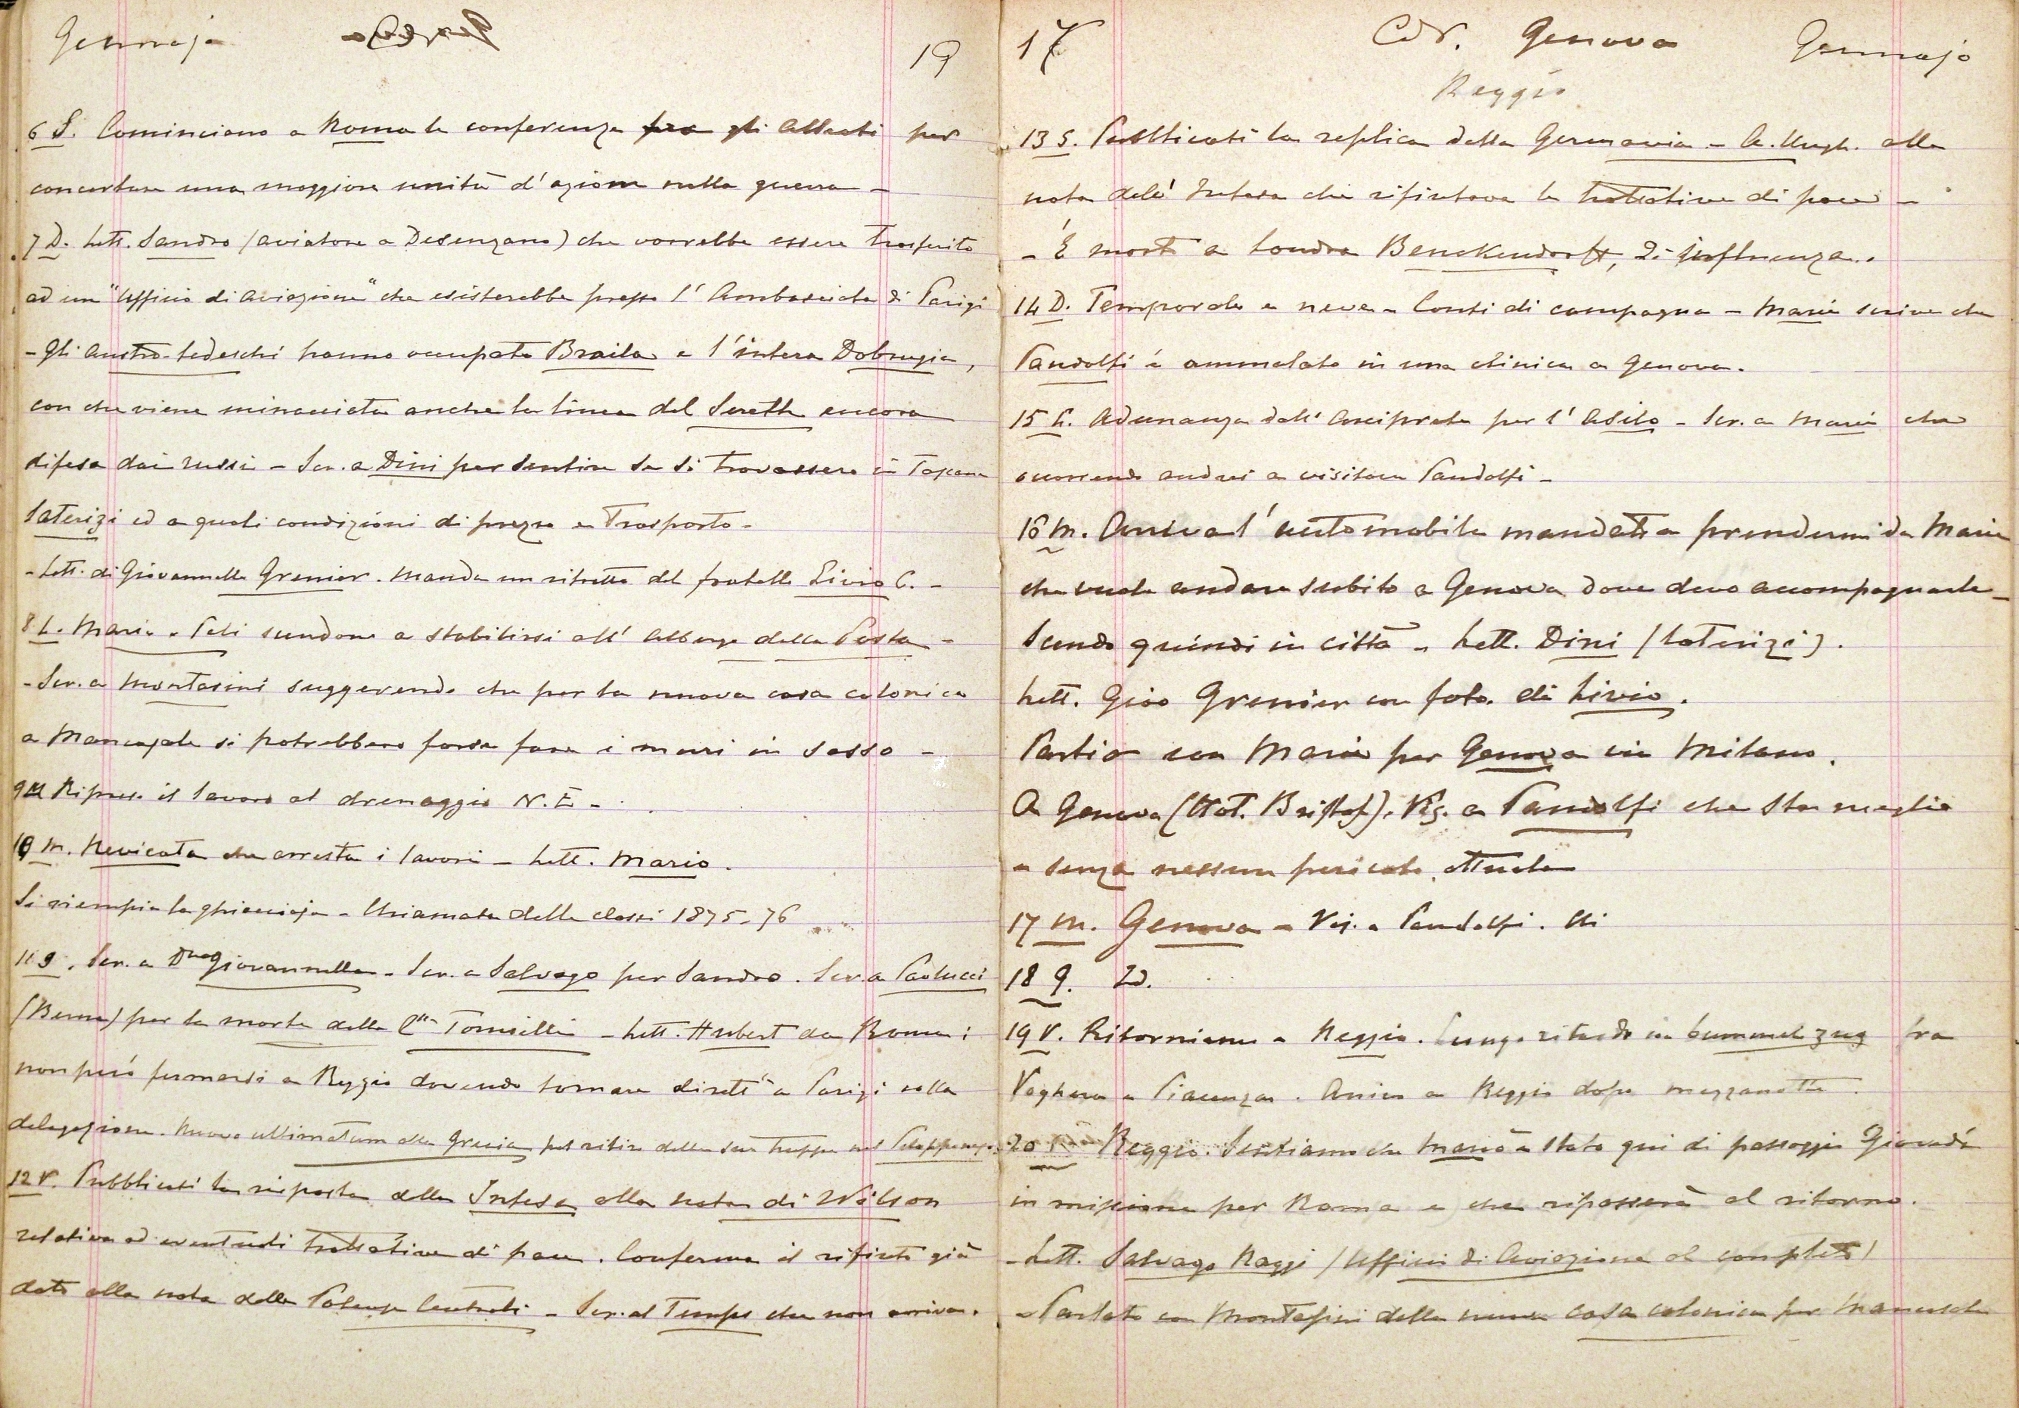 Gennajo
19
6 S. Cominciano a Roma le conferenze fra gli alleati per
concertare una maggiore unità d'azione nella guerra -
7 D. Lett. Sandro (aviatore a Desenzano) che vorrebbe essere trasferito
ad un "Ufficio di aviazione" che esisterebbe presso l'Ambasciata di Parigi
- Gli austro-tedeschi hanno occupato Braila e l'intera Dobrugia,
con che viene minacciata anche la linea del Sereth ancora
difesa dai russi - Scr. a Dini per sentire se si trovassero in Toscana
laterizi ed a quali condizioni di prezzo e trasporto -
- Lett. di Giovannella Grenier. Manda un ritratto del fratello Livio C. -
8 L. Maria e Peli scendono a stabilirsi all'Albergo della Posta -
- Scr. a Montasini suggerendo che per la nuova casa colonica
a Mancasale si potrebbero forse fare i muri in sasso -
9 M Ripreso il lavoro al drenaggio N.E -
10 M. Nevicata che arresta i lavori - Lett. Mario.
Si riempie la ghiacciaja - Chiamata delle classi 1875-76
11 G. Scr. a Giovannella - Scr. a Salvago per Sandro. Scr. a Paolucci
(Berna) per la morte della Tornielli - Lett. Hubert da Roma:
non può fermarsi a Reggio dovendo tornare dirett. a Parigi colla
delegazione. Nuovo ultimatum alla Grecia pel ritiro delle sue truppe nel Peloponneso.
12 V. Pubblicasi la risposta della Intesa alla nota di Wilson
relativa ad eventuali trattative di pace. Conferma il rifiuto già
dato alla nota delle Potenze Centrali - Scr. al Temps che non arriva.
17
Genova
Gennajo
Reggio
13 S. Pubblicasi la replica della Germania - A. Ungh. alla
nota dell'Intesa che rifiutava le trattative di pace -
- È morto a Londra Benckendorff, di influenza.
14 D. Temporale e neve - Conti di campagna - Maria scrive che
Pandolfi è ammalato in una clinica a Genova.
15 L. Adunanza dall'Arciprete per l'Asilo - Scr. a Maria che
occorrendo andrei a visitare Pandolfi -
16 M. Arriva l'automobile mandato a prendermi da Maria
che vuole andare subito a Genova dove devo accompagnarla -
Scendo quindi in città - Lett. Dini (laterizi).
Lett. Gioo Grenier con foto. di Livio.
Partio con Maria per Genova via Milano.
A Genova (Hot. Bristol). Vis. a Pandolfi che sta meglio
e senza nessun pericolo attuale
17 M. Genova - Vis. a Pandolfi.
18 G. Id.
19 V. Ritorniamo a Reggio. Lungo ritardo in bummelzug fra
Voghera e Piacenza. Arrivo a Reggio dopo mezzanotte.
20 S Reggio. Sentiamo che Mario è stato qui di passaggio Giovedì
in missione per Roma e che ripasserà al ritorno.
- Lett. Salvago Raggi (Ufficio di Aviazione al completo)
- Parlato con Montasini della nuova casa colonica per Mancasale